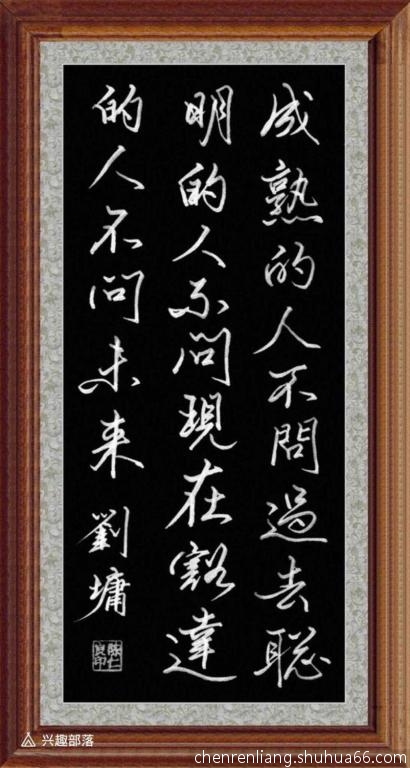 成熟的人不問過去聪
明的人不问現在豁達
的人不问未来 劉墉
陈仁良印
兴趣部落
chenrenliang.shuhua66.com